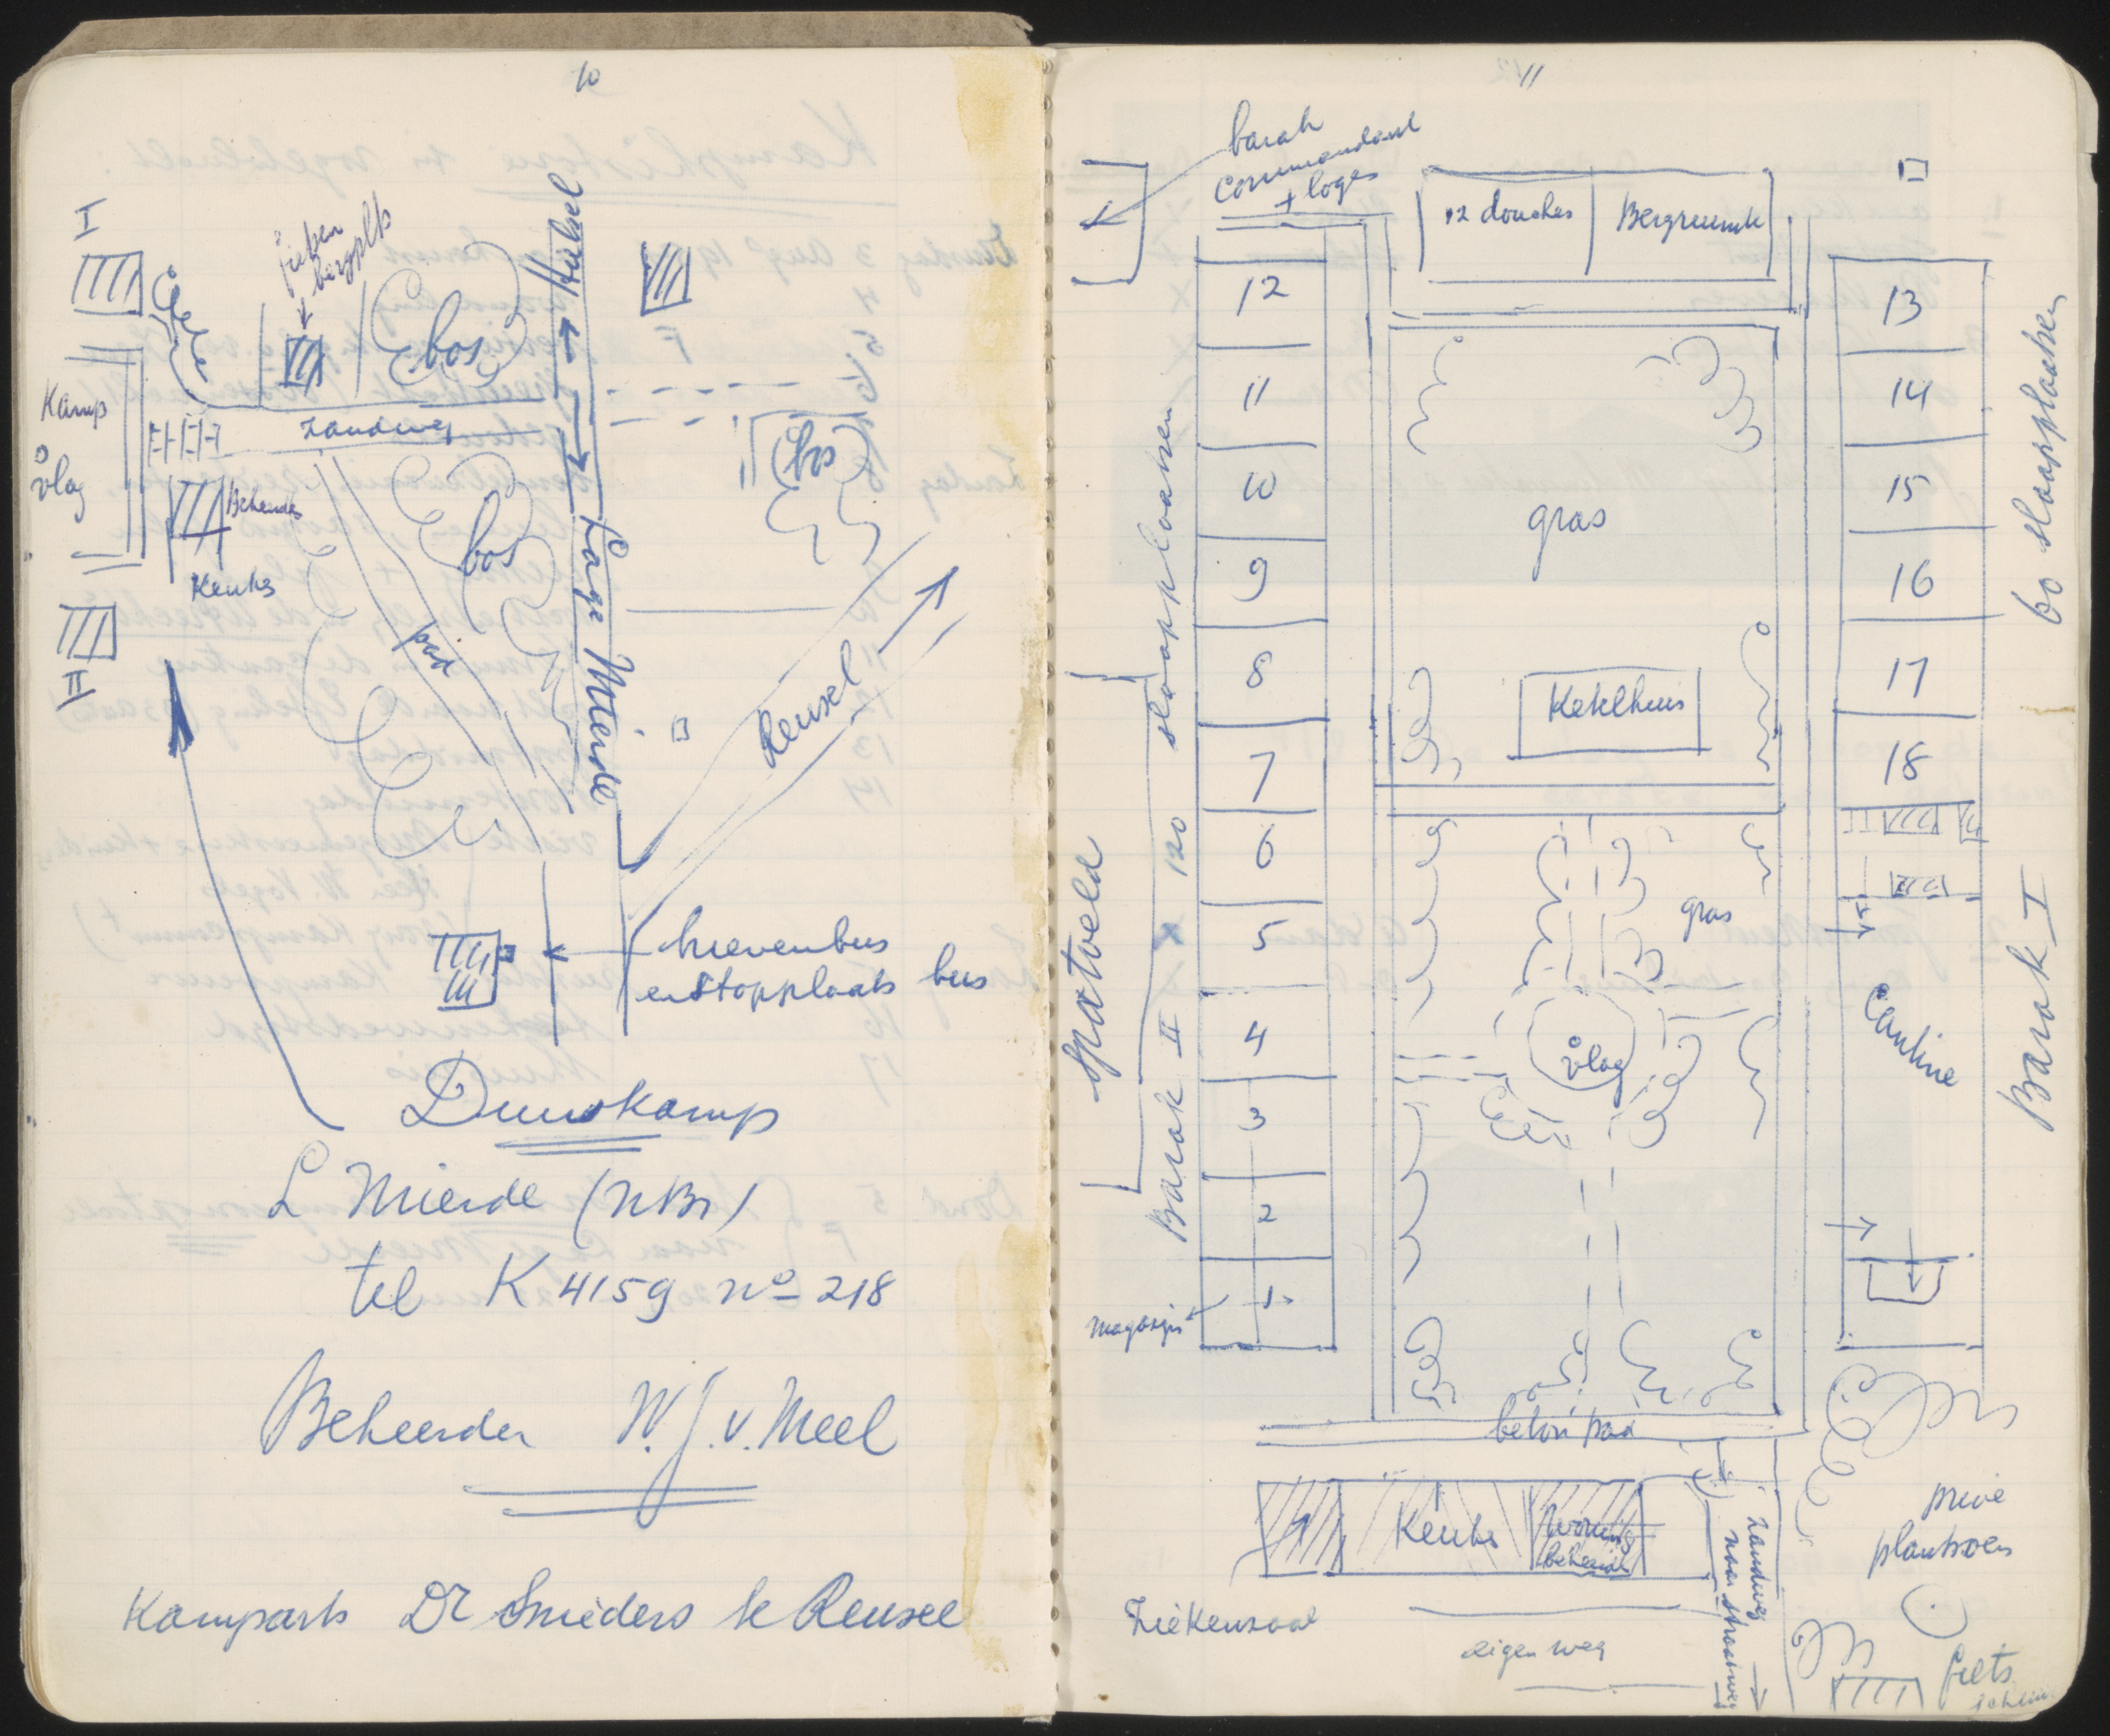 10
I
fietsen
bergpl.
Hulsel
bos
Kamp
vlag
zandweg
bos
Beheerder
Keuken
bos
pad
II
Lage Mierde
Reusel
brievenbus
en stopplaats bus
Dunskamp
L Mierde (NBr)
tel K 4159 no 218
Beheerder W. J. v. Meel
Kamparts Dr Smeders te Reusel
11
barak
commandant
+ loges
12 douches
Bergruimte
12
11
10
9
8
7
6
5
4
3
2
1
magazijn
sportveld
Barak II x 120 slaapplaatsen
gras
Ketelhuis
gras
vlag
beton pad
13
14
15
16
17
18
Cantine
60 slaapplaatsen
Barak I
Keuken
woning
beheerder
Ziekenzaal
eigen weg
zandweg
naar straatweg
privé
plantsoen
fiets